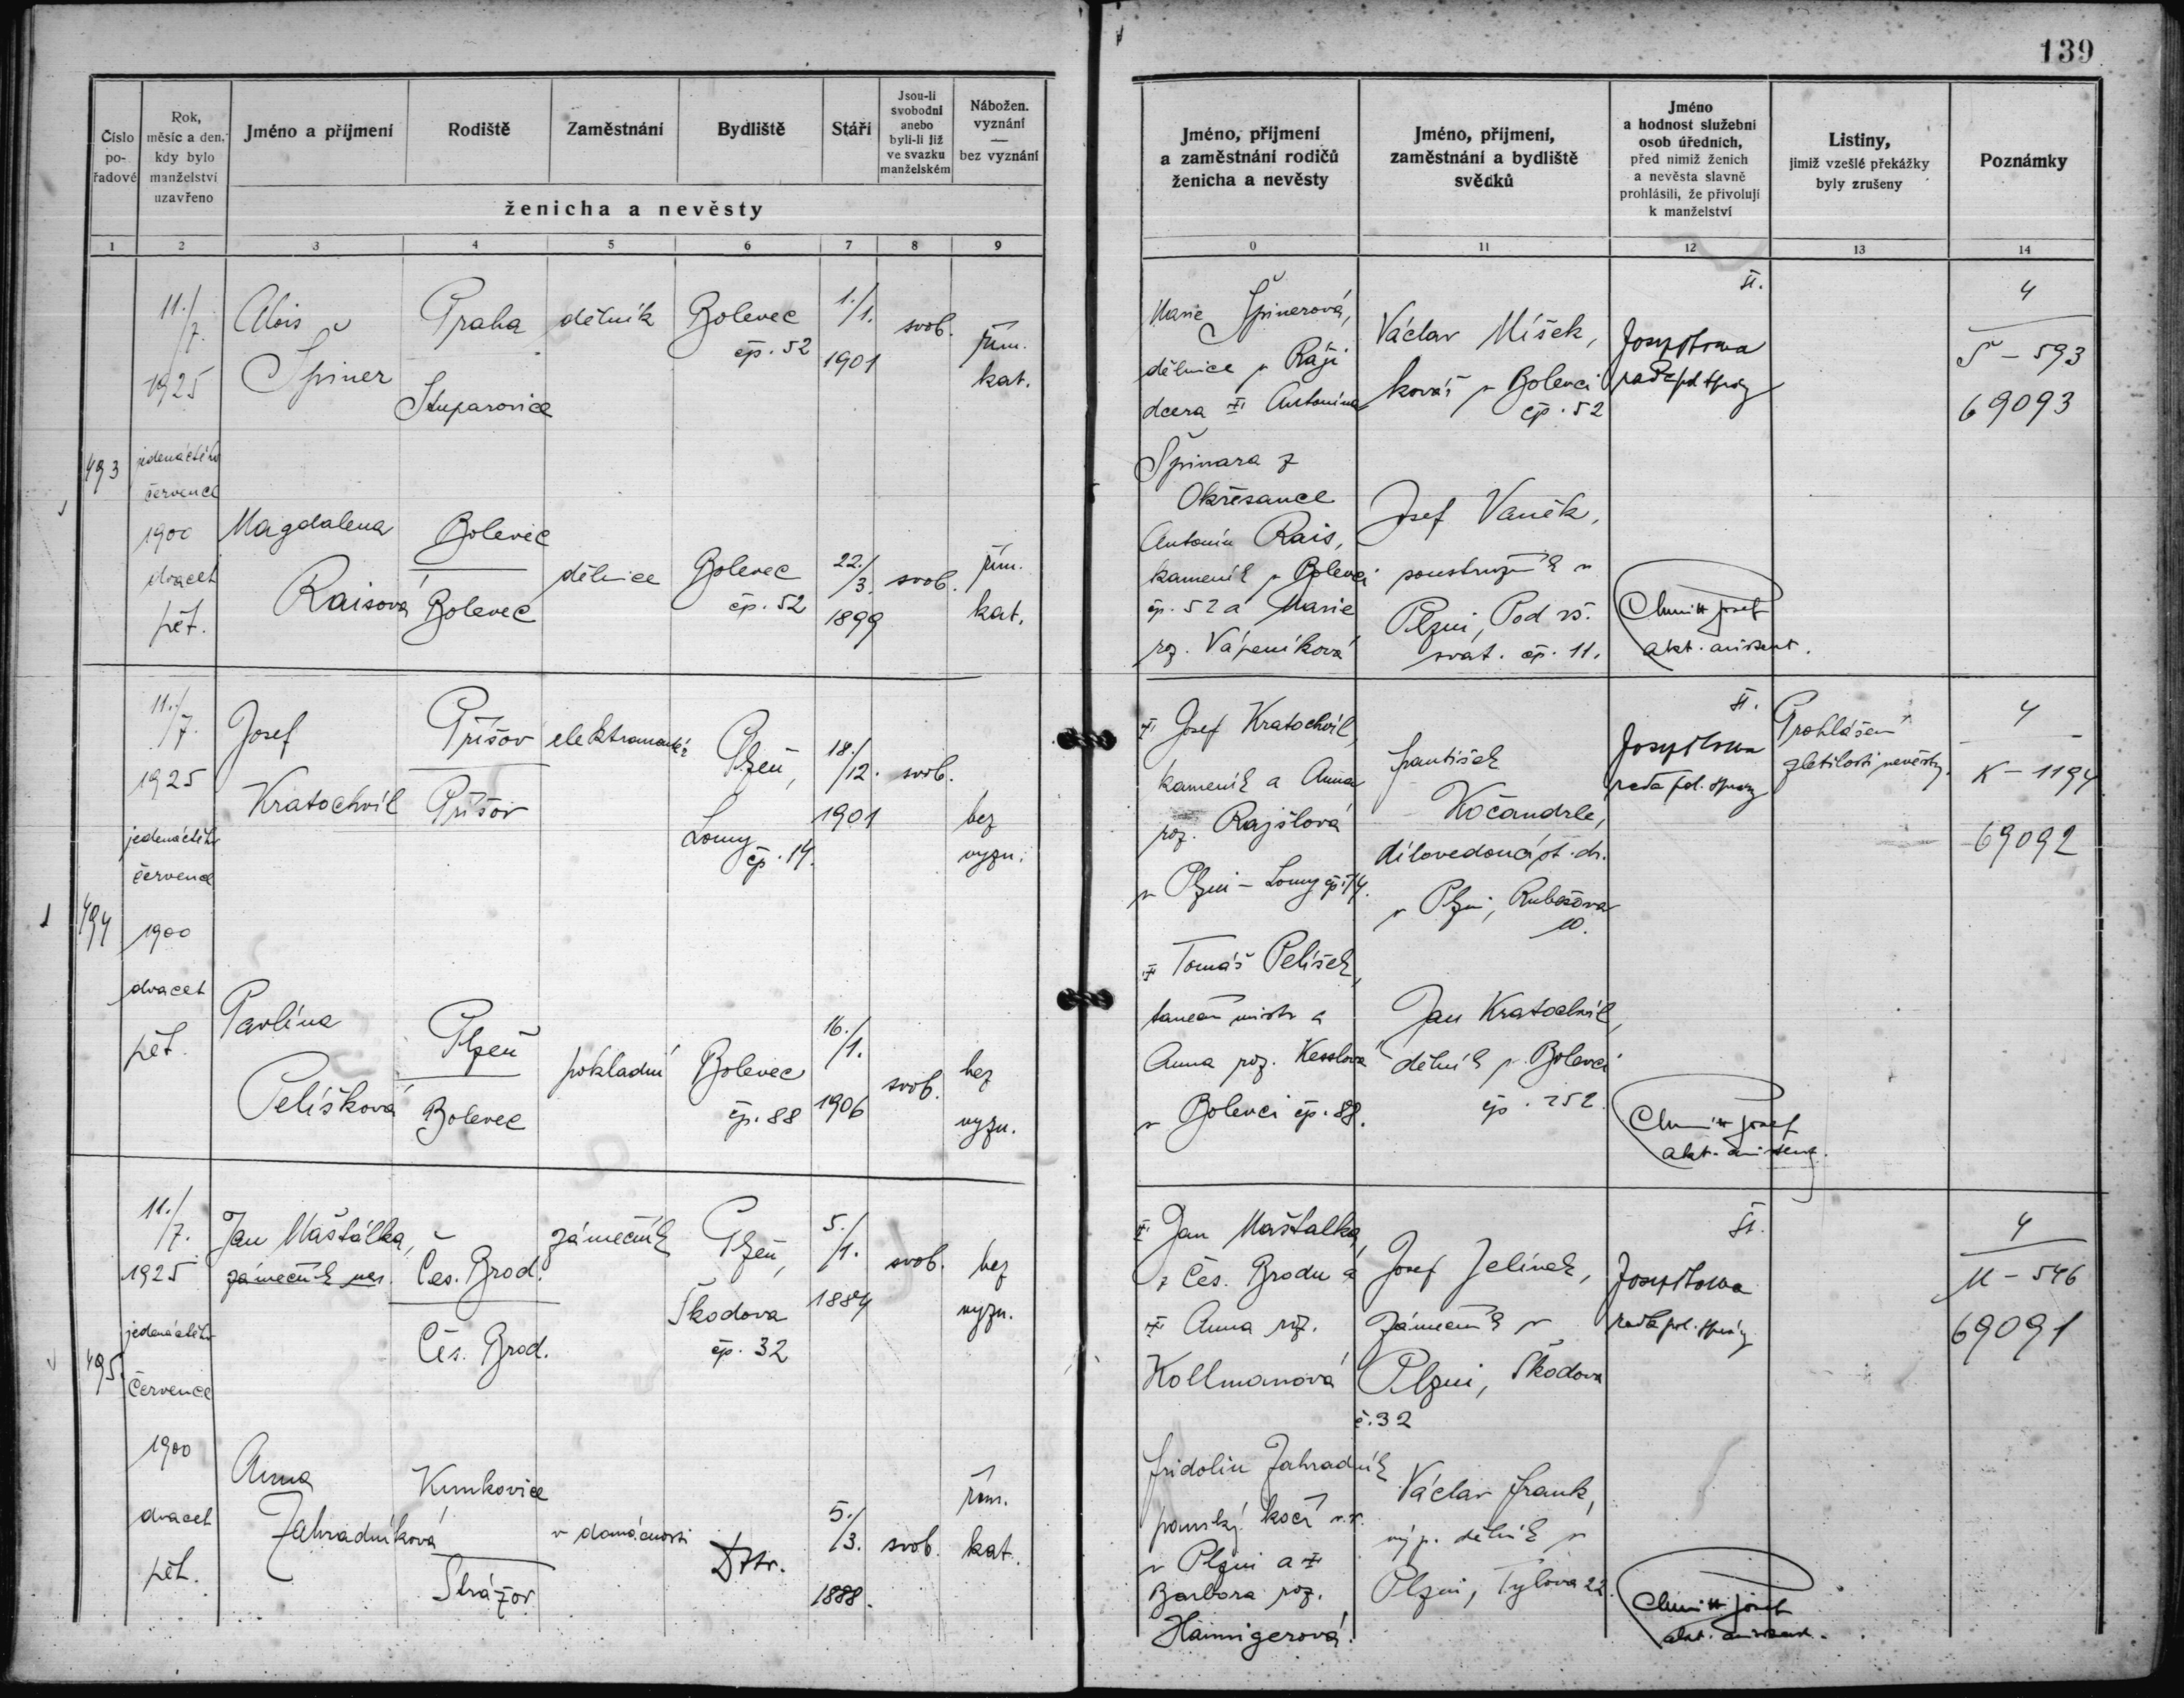 139
Číslo
po-
řadové
Rok,
měsíc a den,
kdy bylo
manželství
uzavřeno
Jméno a příjmení
Rodiště
Zaměstnání
Bydliště
Stáří
Jsou-li
svobodni
anebo
byli-li již
ve svazku
manželském
Nábožen.
vyznání
—
bez vyznání
ženicha a nevěsty
Jméno, příjmení
a zaměstnání rodičů
ženicha a nevěsty
Jméno, příjmení,
zaměstnání a bydliště
svědků
Jméno
a hodnost služební
osob úředních,
před nimiž ženich
a nevěsta slavně
prohlásili, že přivolují
k manželství
Listiny,
jimiž vzešlé překážky
byly zrušeny
Poznámky
1 2 3 4 5 6 7 8 9 0 11 12 13 14
493
11./7.
1925
jedenáctého
července
1900
dvacet
pět.
Alois
Špiner
Praha
Stuparovice
dělník
Bolevec
čp. 52
1./1.
1901
svob.
řím.
kat.
Magdalena
Raisová
Bolevec
Bolevec
dělnice
Bolevec
čp. 52
22./3.
1899
svob.
řím.
kat.
Marie Špinerová,
dělnice v Ráji
dcera Antonína
Špinara z
Okřesance
Antonín Rais,
kameník v Bolevci
čp. 52 a Marie
roz. Vápeníková
Václav Míšek,
kovář v Bolevci
čp. 52
Josef Vaněk,
soustružník v
Plzni, Pod vš.
svat. čp. 11.
rada pol. správy
Josef
akt. assistent.
4
Š - 593
69093
494
11./7.
1925
jedenáctého
července
1900
dvacet
pět.
Josef
Kratochvíl
Příšov
Příšov
elektromontér
Plzeň,
Lomy
čp. 14.
18./12.
1901
svob.
bez
vyzn.
Pavlína
Pelíšková
Plzeň
Bolevec
pokladní
Bolevec
čp. 88
16./1.
1906
svob.
bez
vyzn.
Josef Kratochvíl,
kameník a Anna
roz. Rajšlová
v Plzni - Lomy čp. 14.
Tomáš Pelíšek,
taneční mistr a
Anna roz. Kesslová
v Bolevci čp. 88.
František
Kočandrle,
dílovedoucí st. dr.
v Plzni, Rubešova
10.
Jan Kratochvíl,
dělník v Bolevci
čp. 252.
rada pol. správy
Josef
akt. assistent.
Prohlášení
zletilosti nevěsty.
4
K - 1194
69092
495.
11./7.
1925
jedenáctého
července
1900
dvacet
pět.
Jan Maštálka,
Čes. Brod.
Čes. Brod.
zámečník
Plzeň,
Škodova
čp. 32
5./1.
1884
svob.
bez
vyzn.
Anna
Zahradníková
Strážov
v domácnosti
5./3.
1888.
svob.
řím.
kat.
Jan Maštalka,
z Čes. Brodu a
Anna roz.
Kollmanová
Fridolin Zahradník
panský kočí v. v.
v Plzni a
Barbora roz.
Hännigerová.
Josef Jelínek,
zámečník v
Plzni, Škodova
č. 32
Václav Frank,
výp. dělník v
Plzni, Tylova 22.
rada pol. správy
Josef
akt. assistent.
4
M - 546
69091